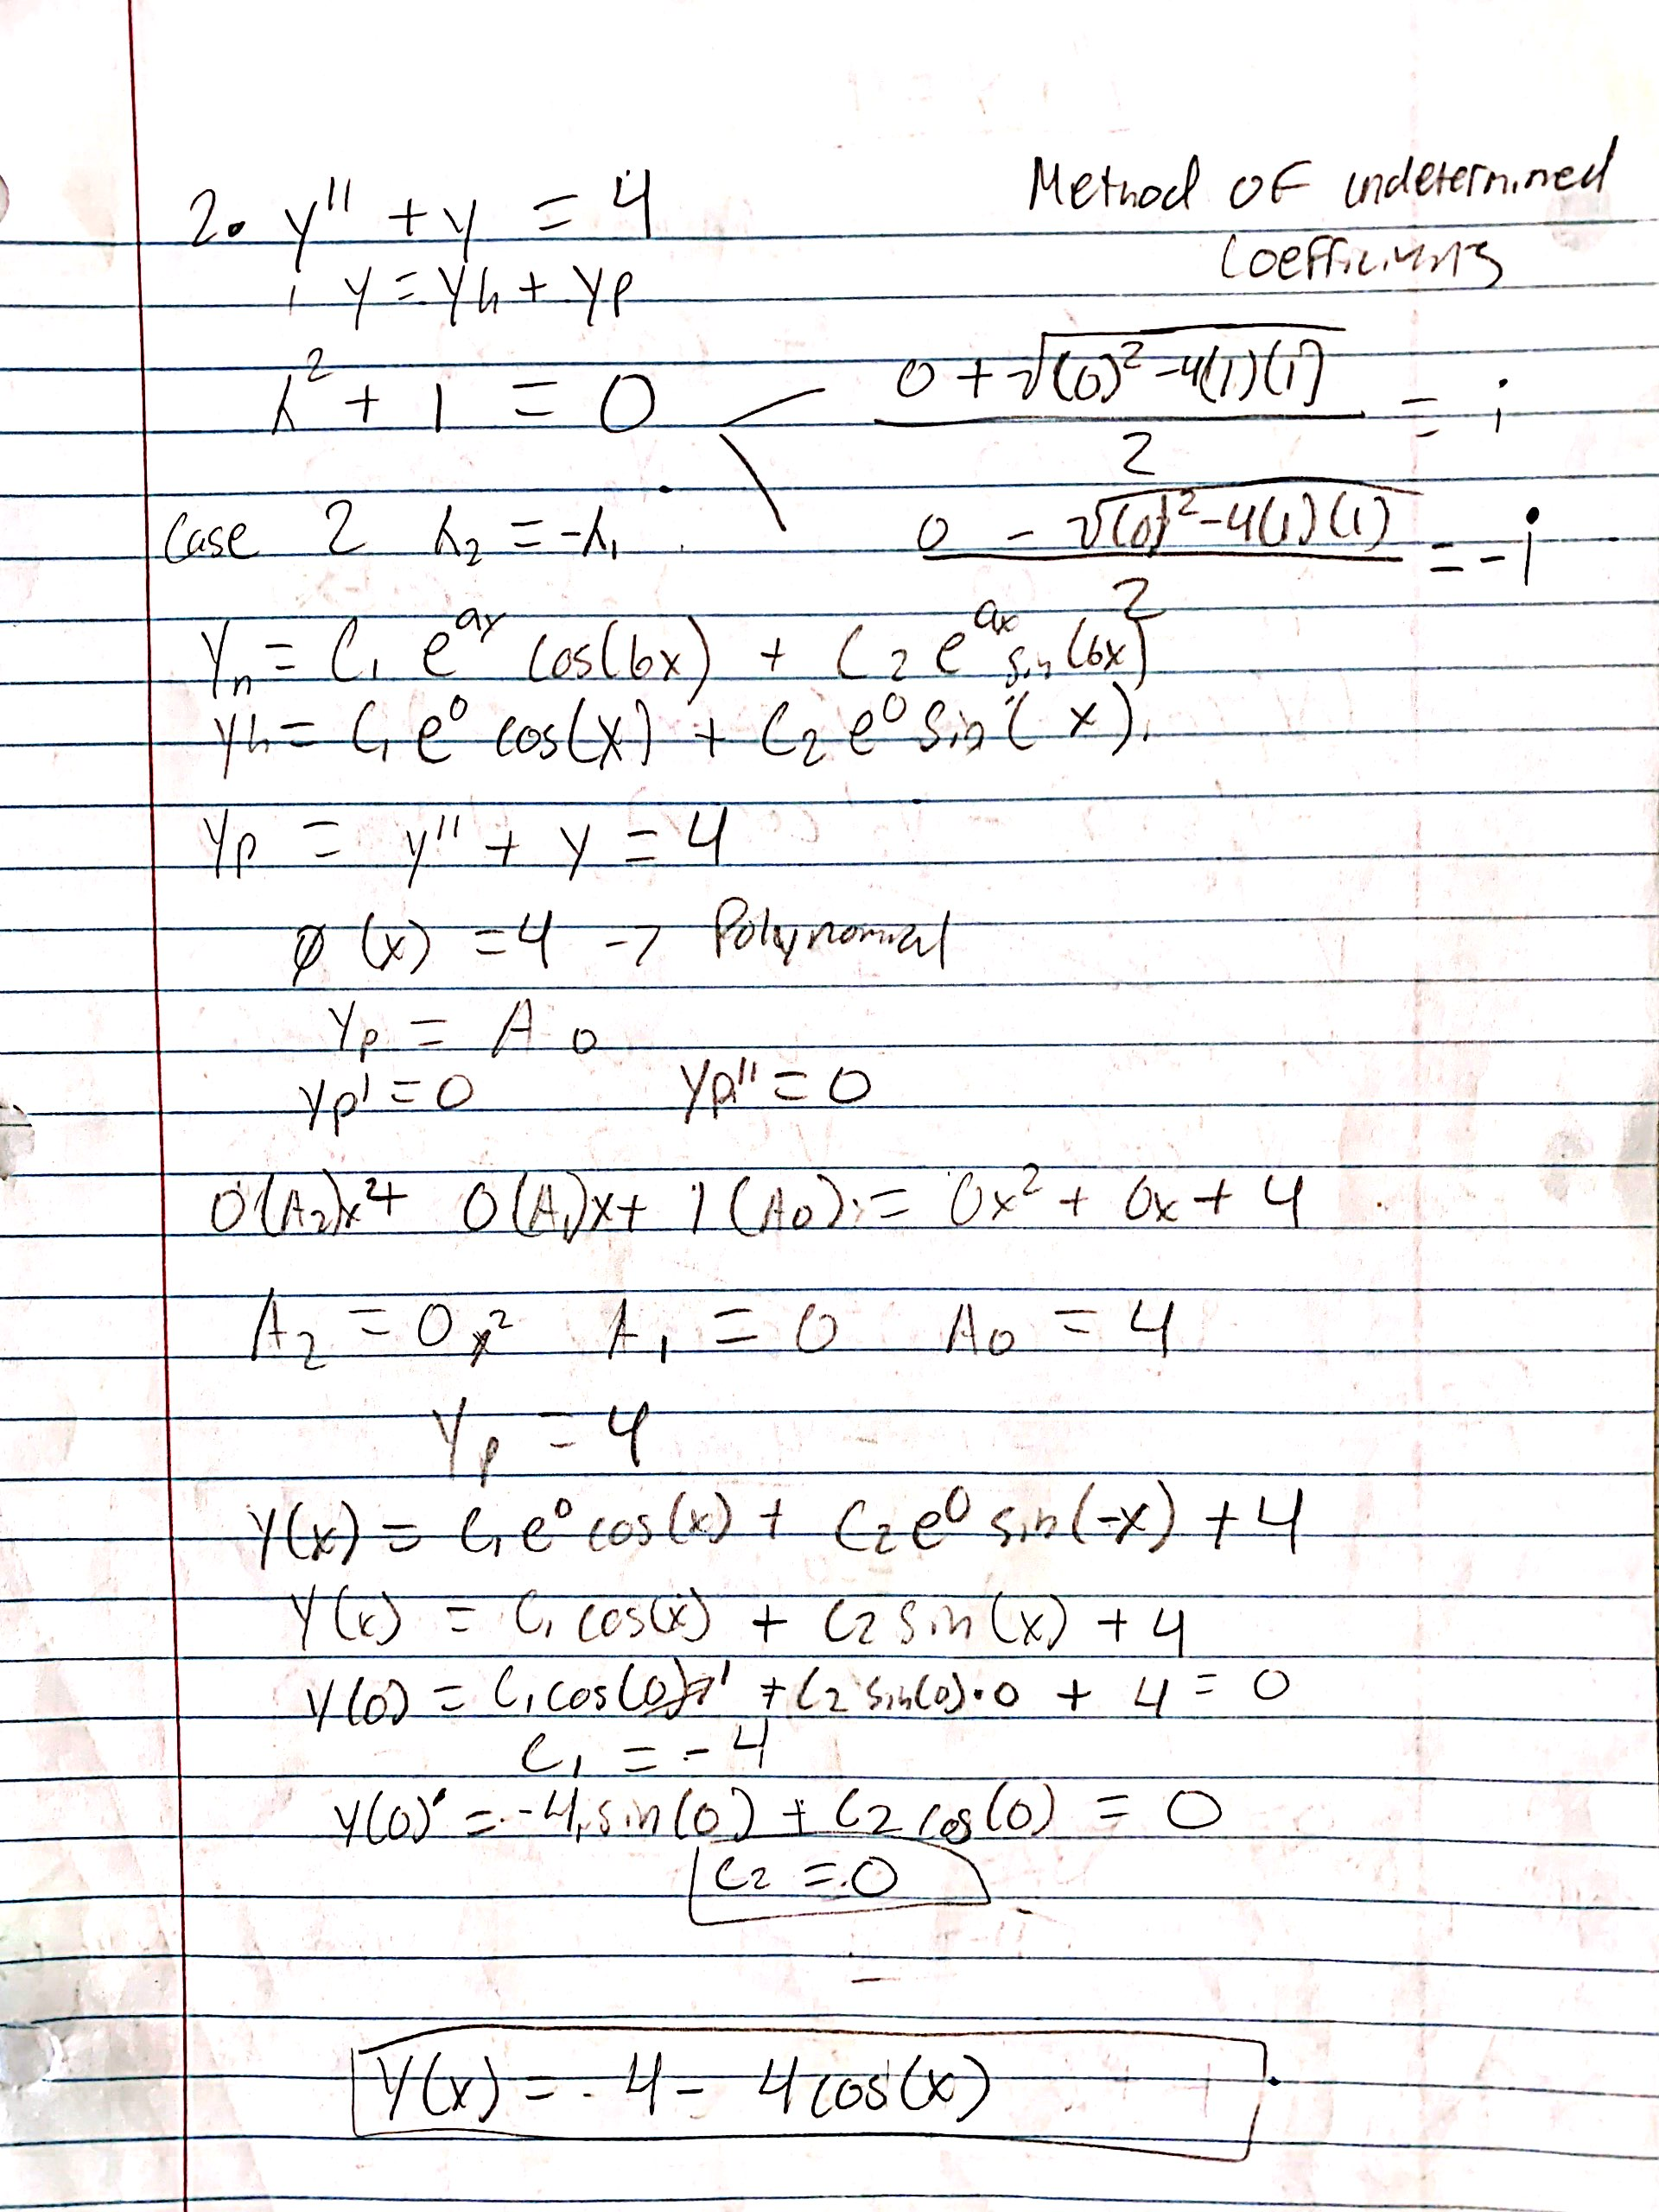 Method of undetermined
Coefficients
2. y'' + y = 4
y = yh + yp
λ² + 1 = 0
0 + √(0)² -4(1)(1) / 2 = i
Case 2 λ₂ = -λ₁
0 - √(0)² -4(1)(1) / 2 = -i
Yn = C₁ e^ax cos(bx) + C₂ e^ax sin(bx)
yh = C₁ e⁰ cos(x) + C₂ e⁰ sin(x).
Yp = y'' + y = 4
φ(x) = 4 -> Polynomial
Yp = A₀
Yp' = 0 Yp'' = 0
0(A₂)x² + 0(A₁)x + 1(A₀) = 0x² + 0x + 4
A₂ = 0x² A₁ = 0 A₀ = 4
Yp = 4
Y(x) = C₁e⁰cos(x) + C₂e⁰ sin(-x) + 4
Y(x) = C₁ cos(x) + C₂ sin(x) + 4
Y(0) = C₁cos(0) 1 + C₂ sin(0)·0 + 4 = 0
C₁ = -4
Y(0)' = -4 sin(0) + C₂ cos(0) = 0
C₂ = 0
Y(x) = 4 - 4cos(x)